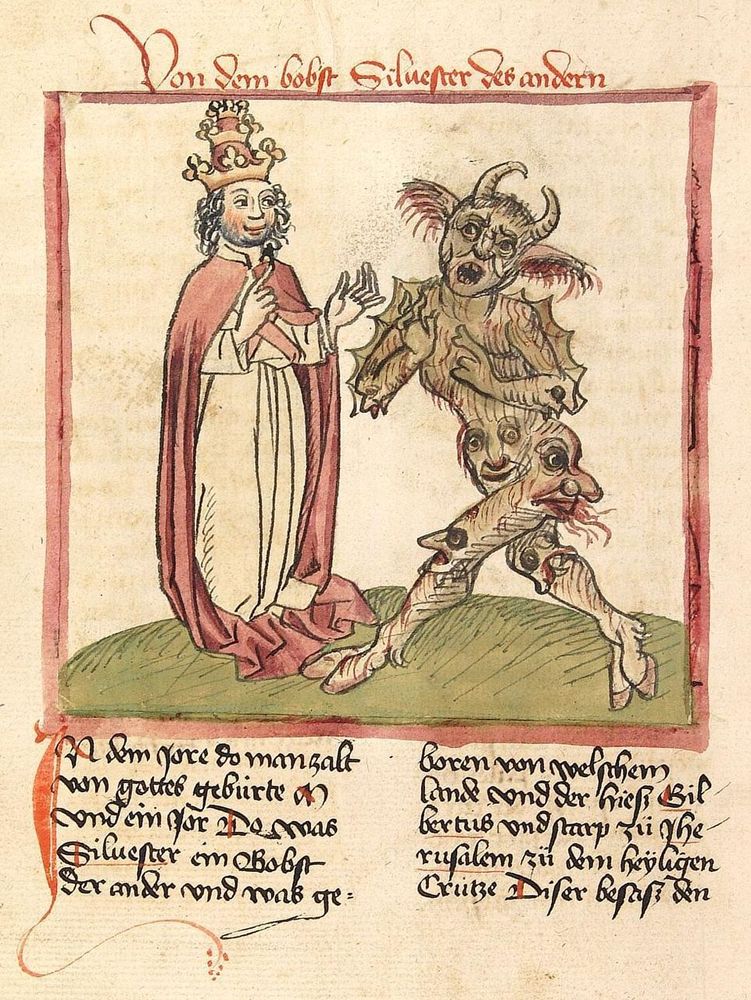 Von dem bobst Siluester des andern
IN dem Jore do man zalt
von gottes gebürte M
vnd ein jor Do was
Siluester ein Bobst
der ander vnd was ge=
boren von welschem
lande vnd der hiesz Gil
bertus vnd starp zü Jhe-
rusalem zü dem heyligen
Crütze Diser besasz den